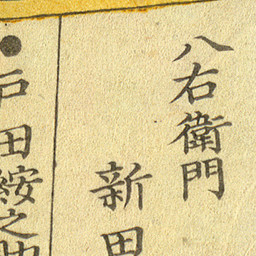 八右衛門
新田
●戸田鋠之助